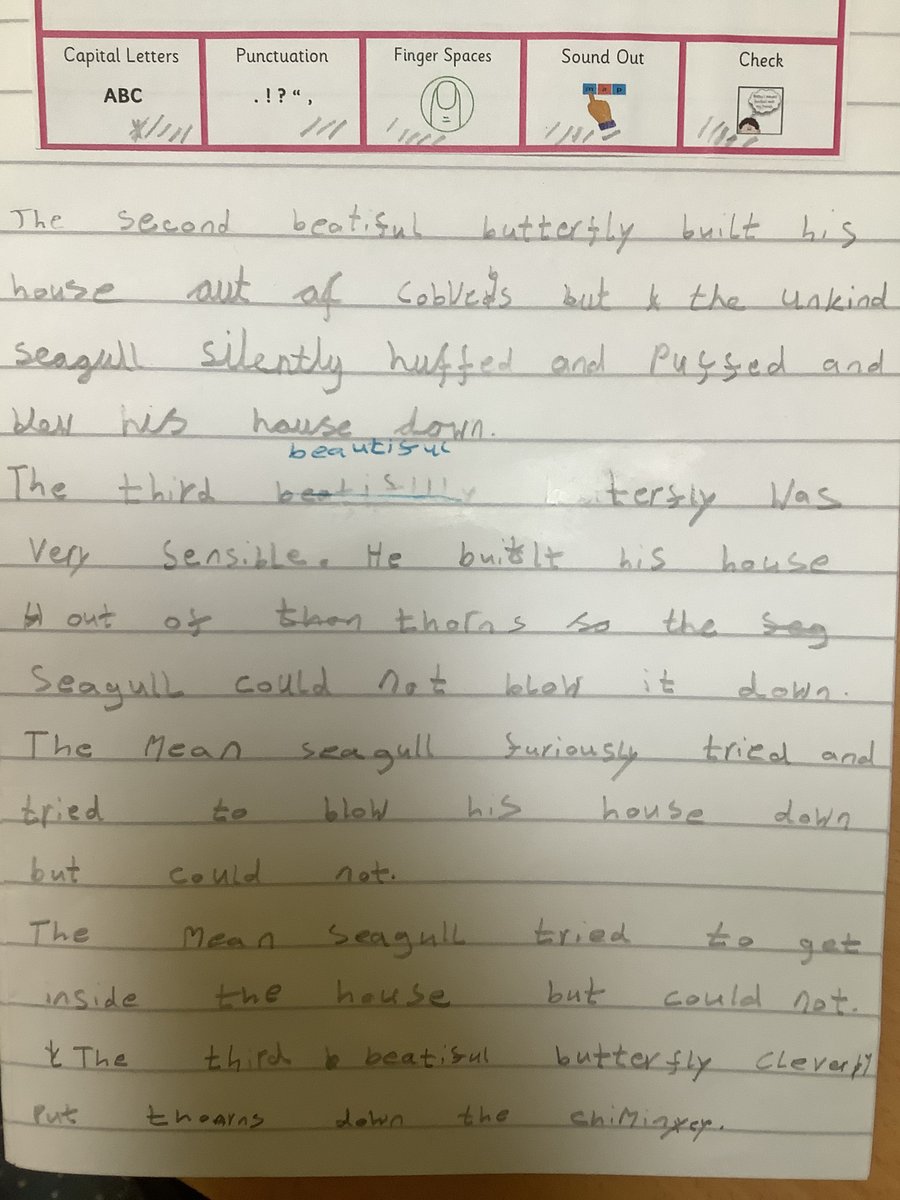 Capital Letters Punctuation Finger Spaces Sound Out Check
ABC . ! ? “ , m a p
The second beatiful butterfly built his
house out of cobveds but the unkind
seagull silently huffed and Puffed and
blew his house down.
beautiful
The third terfly was
Very sensible. He built his house
out of thon thorns so the seg
Seagull could not blow it down.
The Mean seagull furiously tried and
tried to blow his house down
but could not.
The Mean Seagull tried to get
inside the house but could not.
t The third b beatiful butterfly cleverly
Put thoarns down the